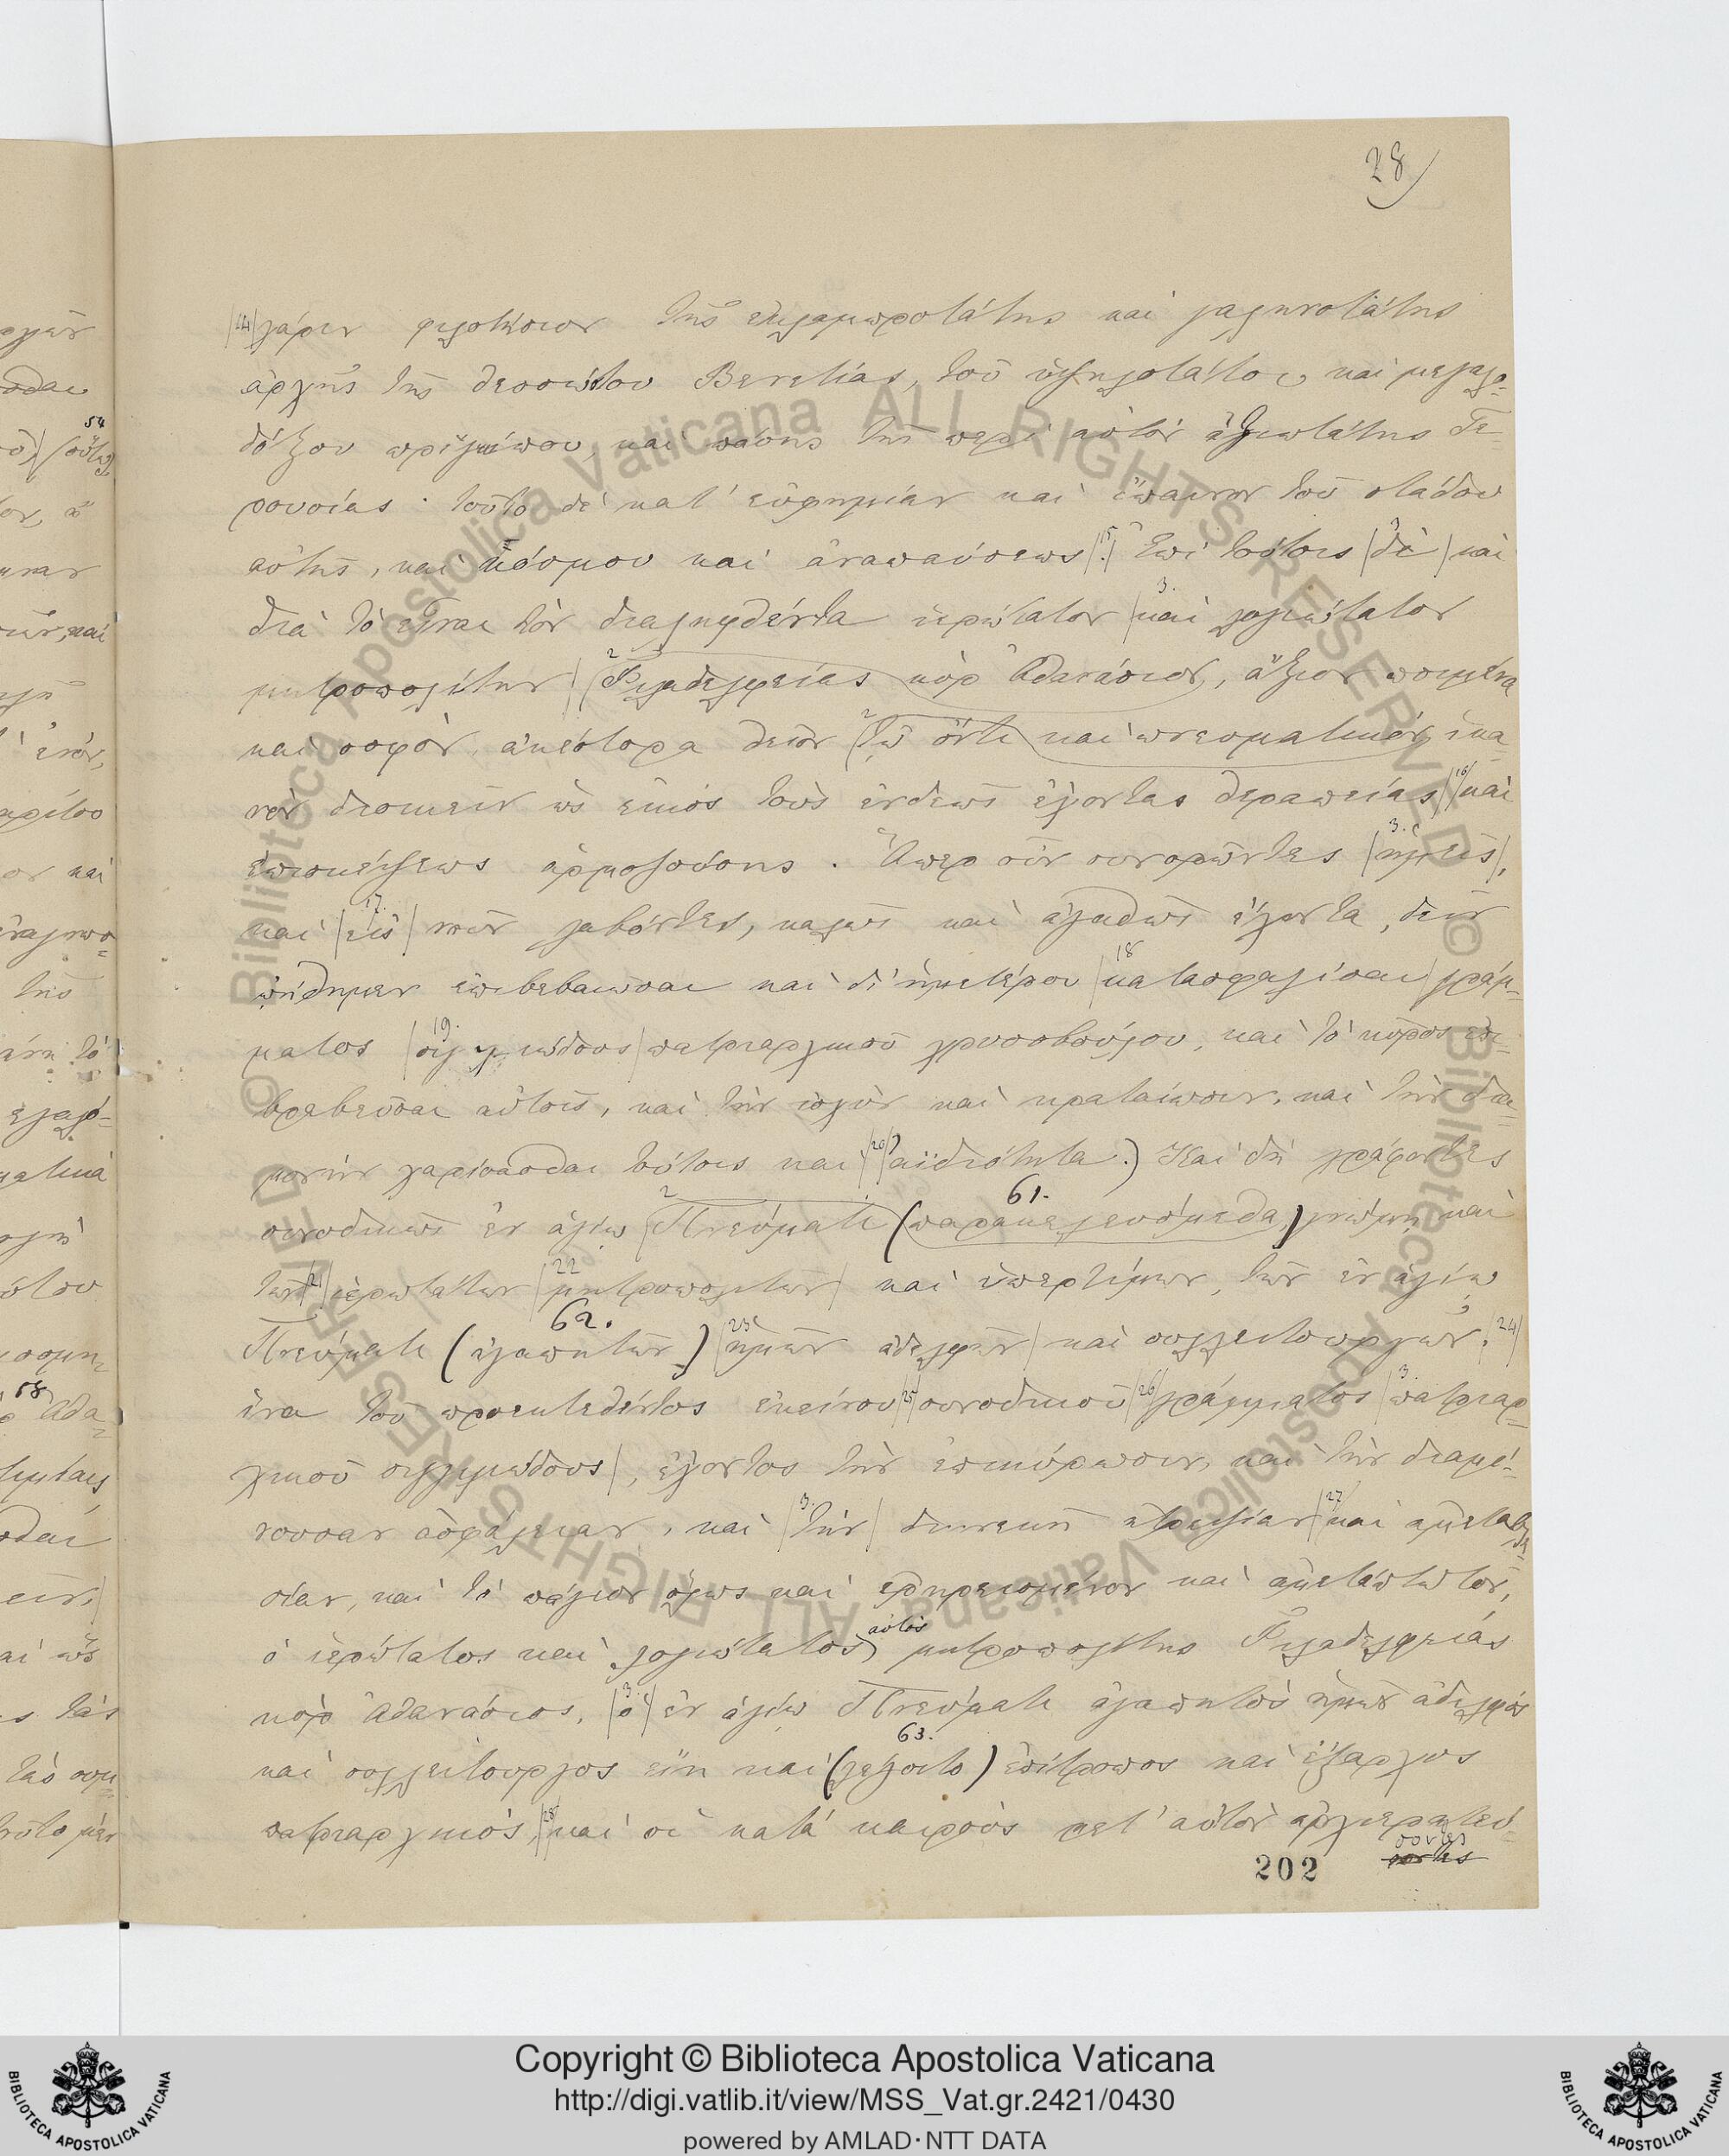 28
|14| χάριν φιλοτήσιον τῆς ἐκλαμπροτάτης καὶ γαληνοτάτης
ἀρχῆς τῆς δεσποίνου Βενετίας, τοῦ ὑψηλοτάτου καὶ μεγαλο-
δόξου πρίγκιπου, καὶ πάσης τῆς περὶ αὐτὸν ἀξιωτάτης Γε-
ρουσίας· τοῦτο δὲ κατ' εὐφημίαν καὶ ἔπαινον τοῦ στάδου
αὐτῆς, καὶ κόσμου καὶ ἀναπαύσεως |15.| Ἐπὶ τούτοις |δὲ| καὶ
διὰ τὸ εἶναι τὸν διαληφθέντα ἱερώτατον |3. καὶ λογιώτατον
μητροπολίτην| (2 Φιλαδελφείας κὺρ Ἀθανάσιον, ἄξιον ποιμένα
καὶ σοφὸν, ἀκέστορα θεῖον (2 τῷ ὄντι καὶ πνευματικόν, ἱκα
νὸν διοικεῖν ὡς εἰκὸς τοὺς ἐνδεῶς ἔχοντας θεραπείας |16| καὶ
ἐπισκέψεως ἁρμοζούσης. Ἅπερ οὖν συνορῶντες |3. ἡμεῖς|,
καὶ |17. εἰς| νοῦν λαβόντες, καλῶς καὶ ἀγαθῶς ἔχοντα, δεῖν
ᾠήθημεν ἐπιβεβαιῶσαι καὶ δι' ἡμετέρου |18 κατασφαλίσαι| γράμ-
ματος |19. σιγιλλιώδους| πατριαρχικοῦ χρυσοβούλου, καὶ τὸ κῦρος ἐπι-
βραβεῦσαι αὐτοῖς, καὶ τὴν ἰσχὺν καὶ κραταίωσιν, καὶ τὴν δια-
μονὴν χαρίσασθαι τούτοις καὶ |20| ἀϊδιότητα.) Καὶ δὴ γράφοντες
συνοδικῶς ἐν ἁγίῳ (2 Πνεύματι (61. παρακελευόμεθα,) γνώμῃ καὶ
τῶν |21| ἱερωτάτων |22 μητροπολιτῶν| καὶ ὑπερτίμων, τῶν ἐν ἁγίῳ
Πνεύματι (62. ἀγαπητῶν) |23 ἡμῶν ἀδελφῶν| καὶ συλλειτουργῶν, |24|
ἵνα τοῦ προεκτεθέντος ἐκείνου |25| συνοδικοῦ |26| γράμματος |3. πατριαρ-
χικοῦ σιγιλλιώδους|, ἔχοντος τὴν ἐπικύρωσιν, καὶ τὴν διαμέ-
νουσαν ἀσφάλειαν, καὶ |3. τὴν| διηνεκῆ ἀτρεψίαν |27 καὶ ἀμεταθε-
σίαν, καὶ τὸ πάγιον ὅλως καὶ ἐρηρεισμένον καὶ ἀμετάπτωτον,
ὁ ἱερώτατος καὶ λογιώτατος αὐτὸς μητροπολίτης Φιλαδελφείας
κὺρ Ἀθανάσιος, |3. ὁ| ἐν ἁγίῳ Πνεύματι ἀγαπητὸς ἡμῶν ἀδελφὸς
καὶ συλλειτουργος εἴη καὶ (63. λέγοιτο) ἐπίτροπος καὶ ἔξαρχος
πατριαρχικός, |28| καὶ οἱ κατὰ καιροὺς μετ' αὐτὸν ἀρχιερατεύ-
σοντες
202